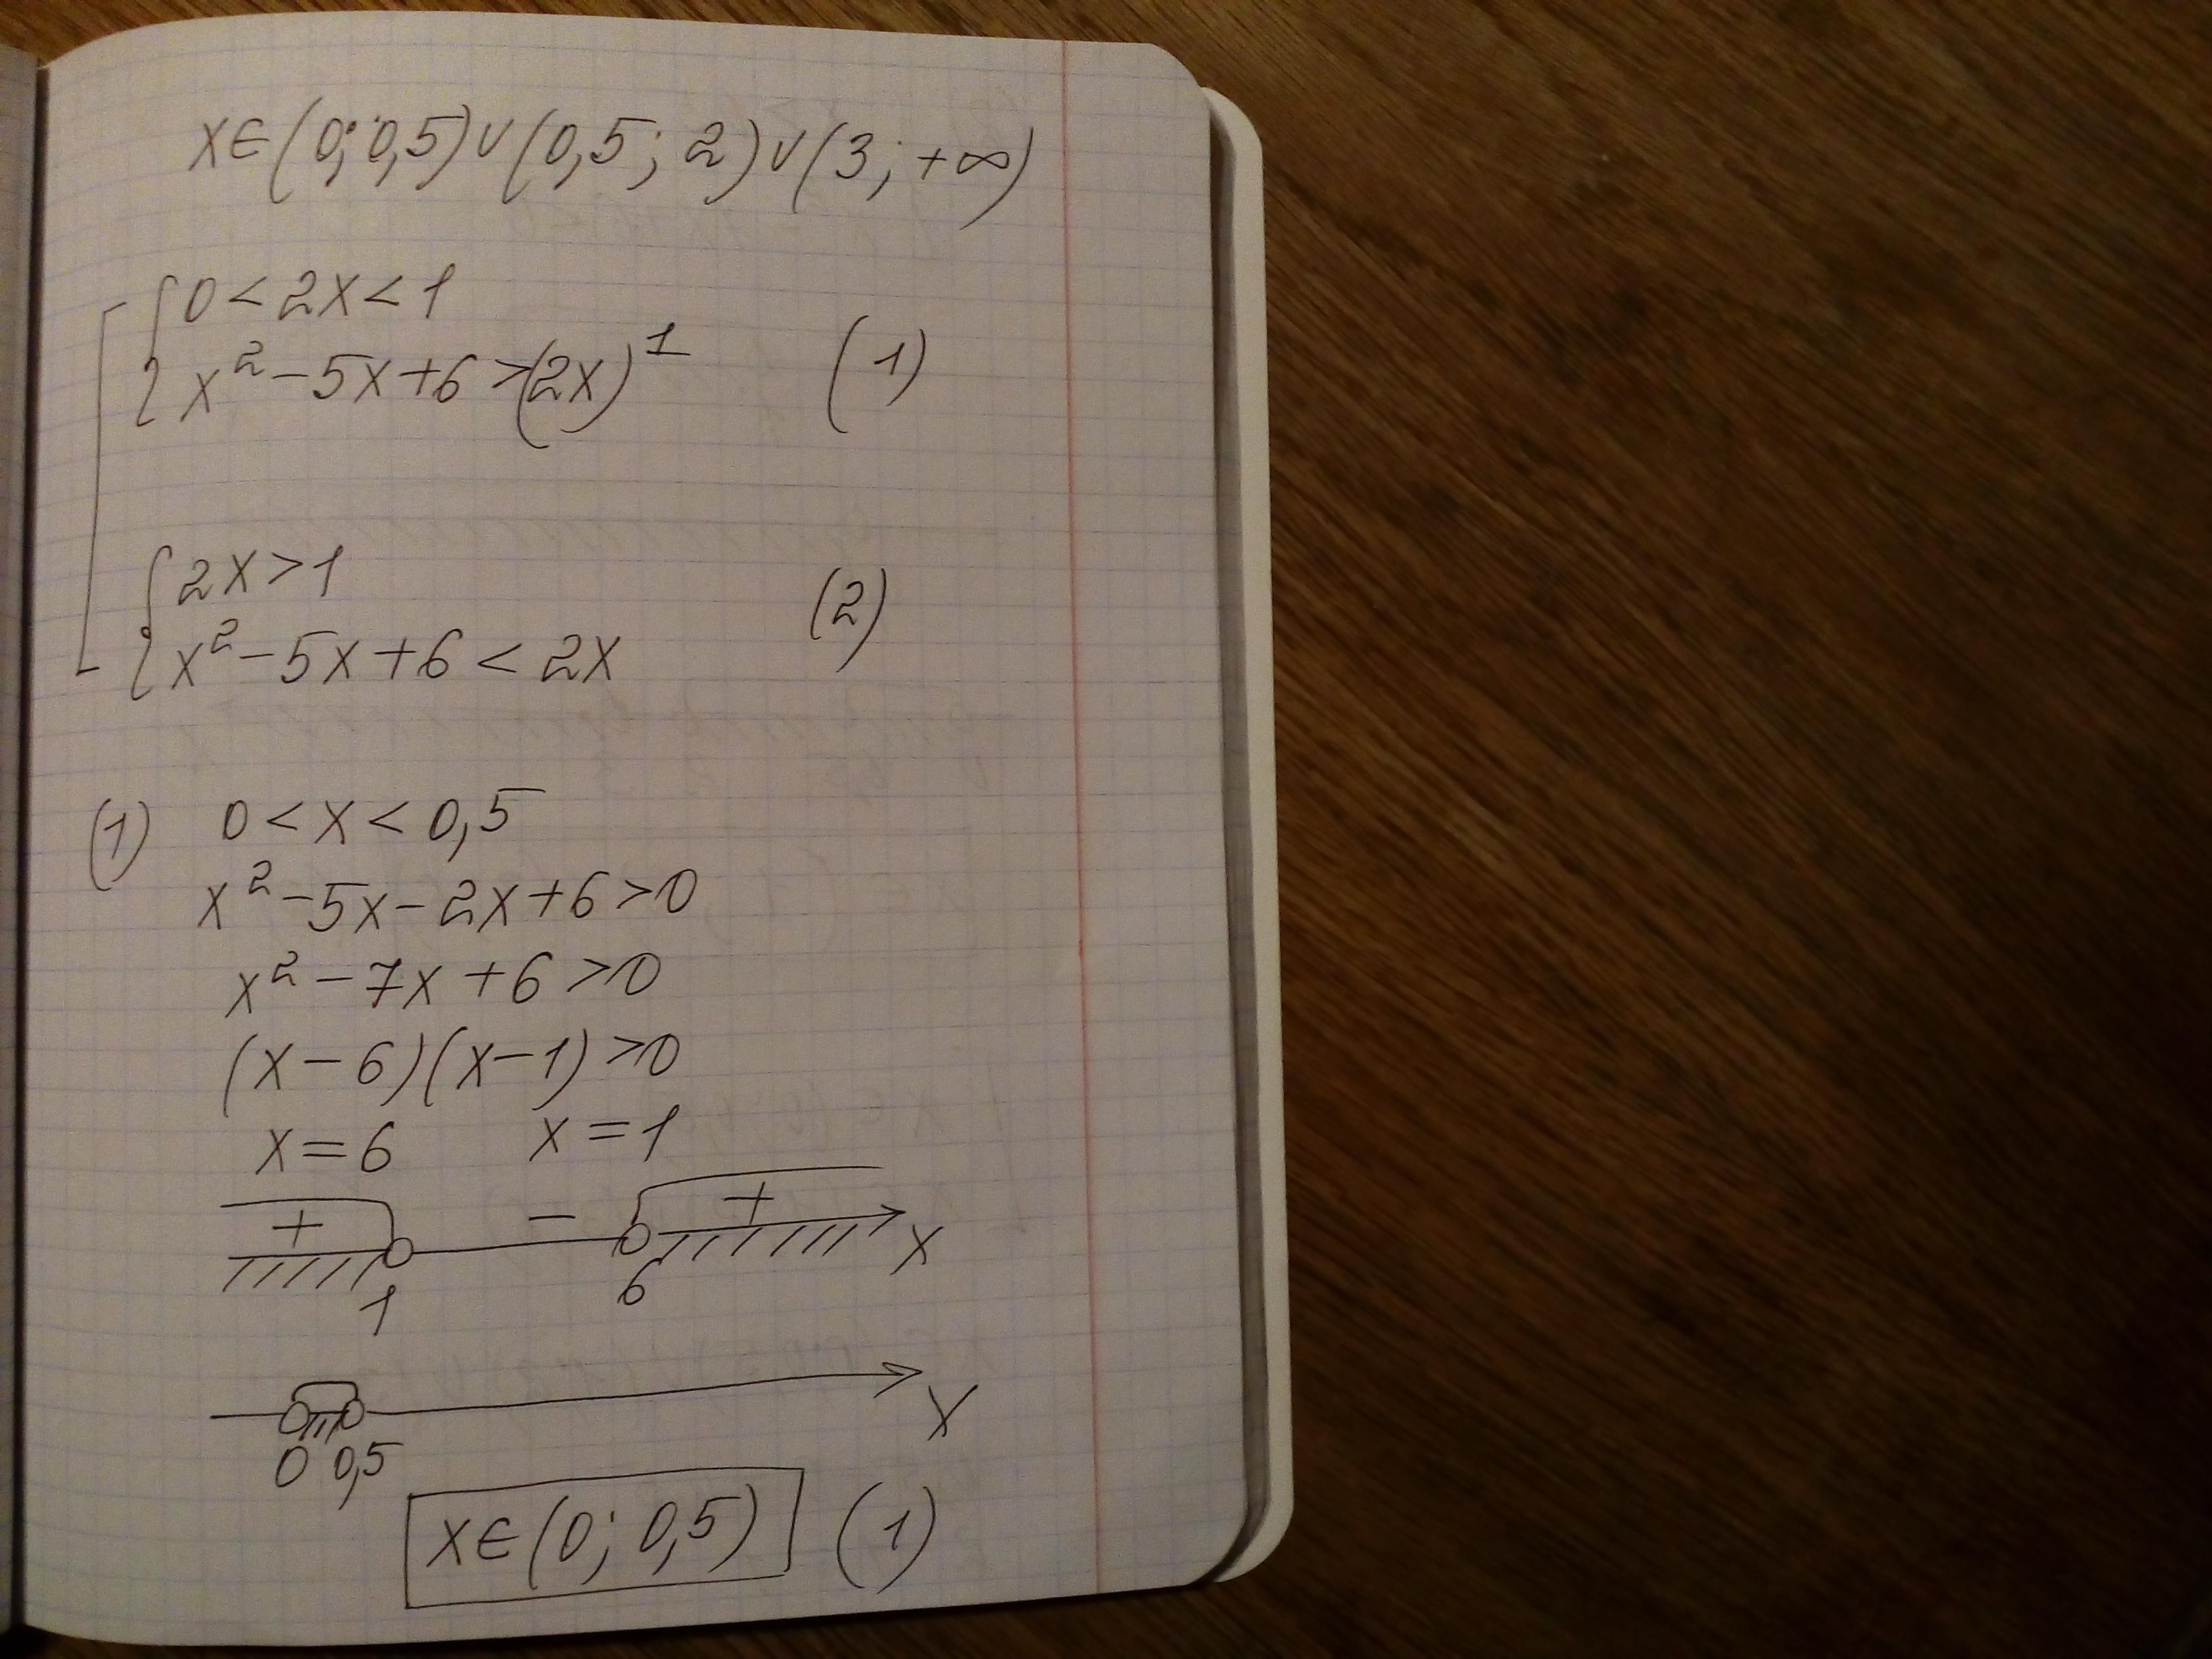 x∈(0; 0,5)∨(0,5; 2)∨(3; +∞)
0 < 2x < 1
x² – 5x + 6 > (2x)¹ (1)
2x > 1
x² – 5x + 6 < 2x (2)
(1) 0 < x < 0,5
x² – 5x – 2x + 6 > 0
x² – 7x + 6 > 0
(x – 6)(x – 1) > 0
x = 6 x = 1
+ – + x
1 6
x
0 0,5
x∈(0; 0,5) (1)